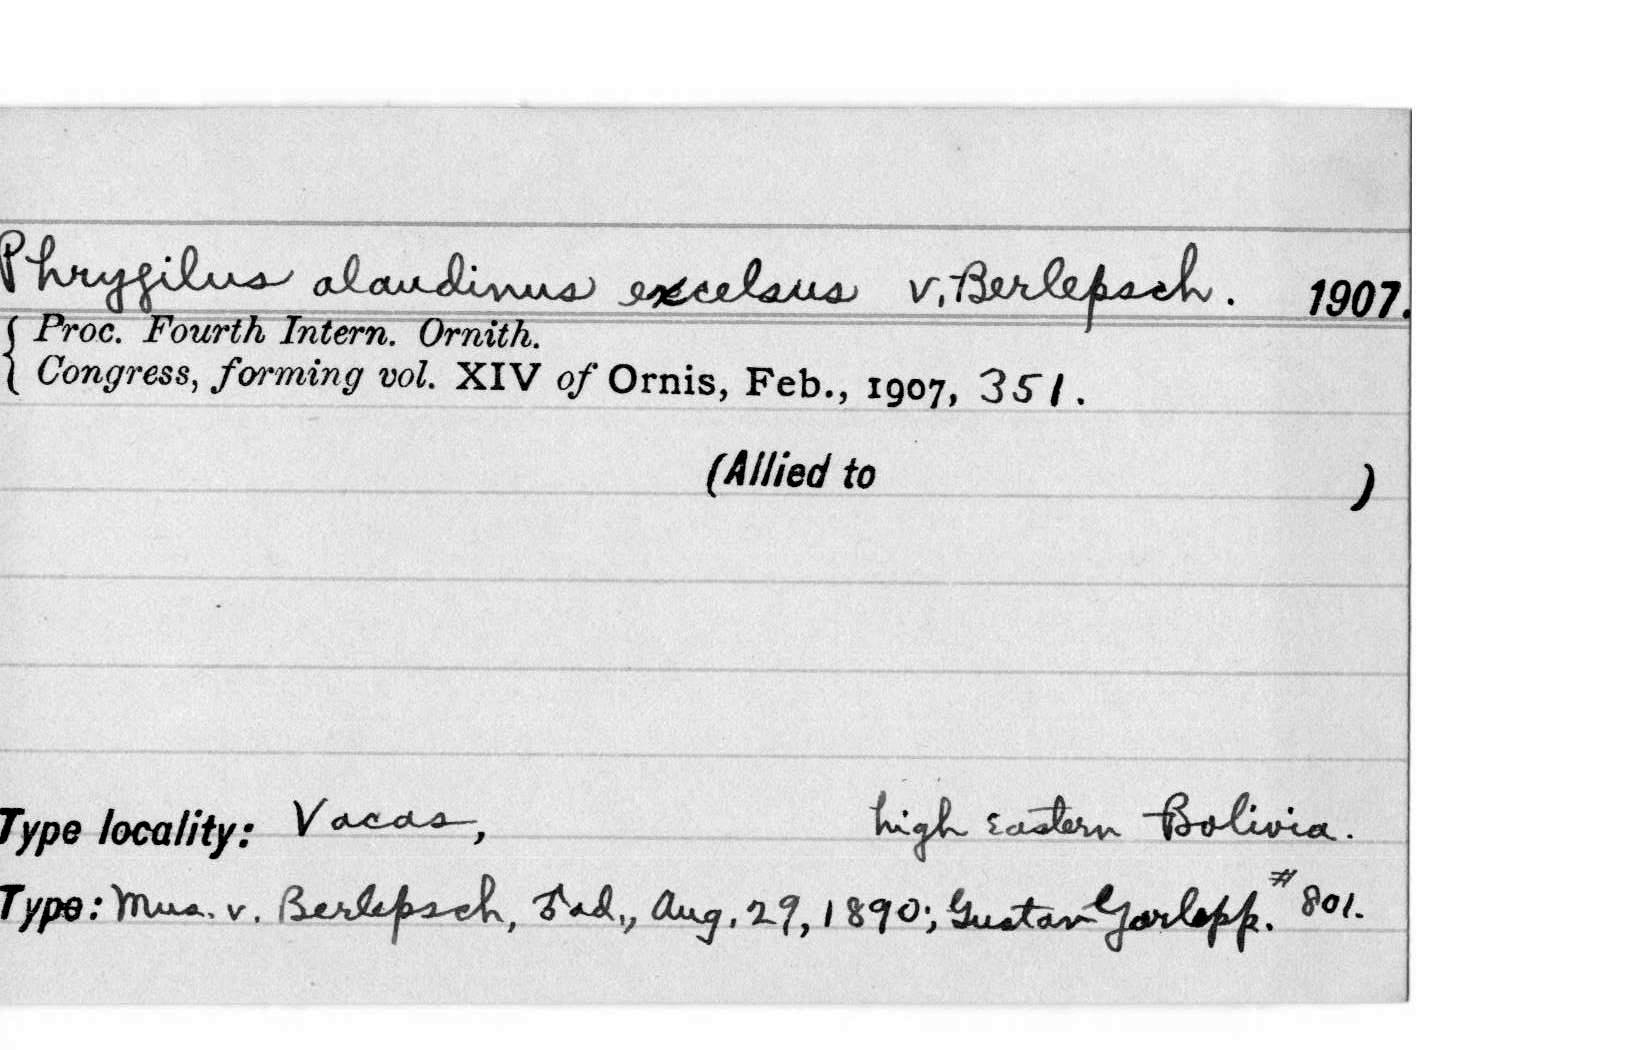 Phrygilus alaudinus excelsus v. Berlepsch. 1907.
Proc. Fourth Intern. Ornith.
Congress, forming vol. XIV of Ornis, Feb., 1907, 351.
(Allied to )
Type locality: Vacas, high eastern Bolivia.
Type: Mus. v. Berlepsch, ad., Aug. 29, 1890; Gustav Garlepp. # 801.